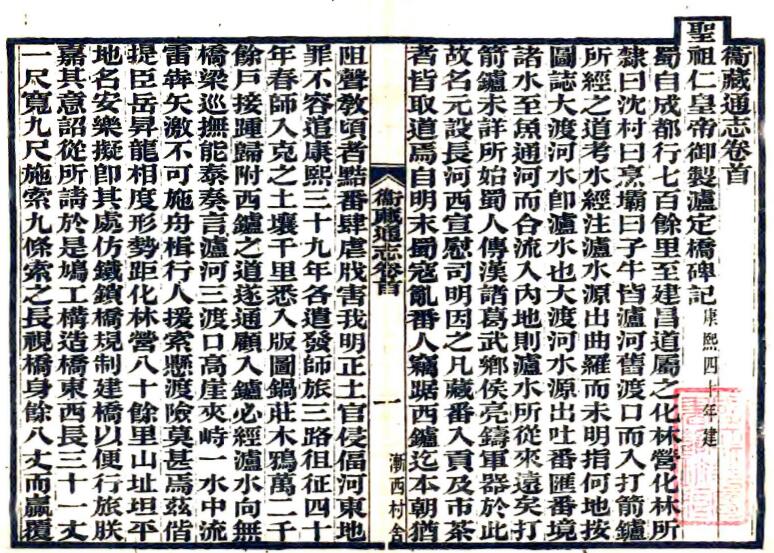 衞藏通志卷首
聖祖仁皇帝御製瀘定橋碑記 康熙四十年建
蜀自成都行七百餘里至建昌道屬之化林營化林所
隸曰沈村曰烹壩曰子牛皆瀘河舊渡口而入打箭鑪
所經之道考水經注瀘水源出曲羅而未明指何地按
圖誌大渡河水卽瀘水也大渡河水源出吐番匯番境
諸水至魚通河而合流入內地則瀘水所從來遠矣打
箭鑪未詳所始蜀人傳漢諸葛武鄉侯亮鑄軍器於此
故名元設長河西宣慰司明因之凡藏番入貢及市茶
者皆取道焉自明末蜀寇亂番人竊踞西鑪迄本朝猶
衞藏通志卷首 一 漸西村舍
阻聲敎頃者黠番肆虐戕害我明正土官侵偪河東地
罪不容逭康熙三十九年各遣發師旅三路徂征四十
年春師入克之土壤千里悉入版圖鍋莊木鴉萬二千
餘戶接踵歸附西鑪之道遂通顧入鑪必經瀘水向無
橋梁巡撫能泰奏言瀘河三渡口高崖夾峙一水中流
雷犇矢激不可施舟楫行人援索懸渡險莫甚焉玆偕
提臣岳昇龍相度形勢距化林營八十餘里山址坦平
地名安樂擬卽其處仿鐵鎖橋規制建橋以便行旅朕
嘉其意詔從所請於是鳩工構造橋東西長三十一丈
一尺寬九尺施索九條索之長視橋身餘八丈而贏覆